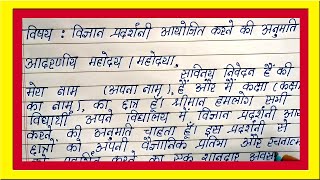 विषय : विज्ञान प्रदर्शनी आयोजित करने की अनुमति
आदरणीय महोदय / महोदया,
सविनय निवेदन है की
मेरा नाम (अपना नाम), है और मैं कक्षा (कक्षा
का नाम), का छात्र हूँ। श्रीमान हमलोग सभी
विद्यार्थी अपने विद्यालय में विज्ञान प्रदर्शनी आ
करने की अनुमति चाहता हूँ। इस प्रदर्शनी से
छात्रों को अपनी वैज्ञानिक प्रतिभा और रचनात्म
को प्रदर्शित करने का एक शानदार अवस